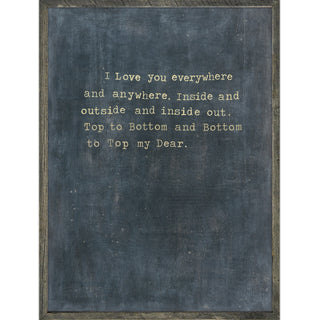 I Love you everywhere
and anywhere. Inside and
outside and inside out.
Top to Bottom and Bottom
to Top my Dear.